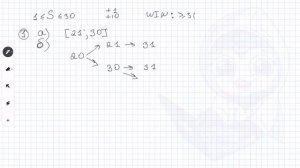 1≤S≤30 +1 +10 WIN: ≥31
① а) [21; 30]
б)
21 → 31
20
30 → 31